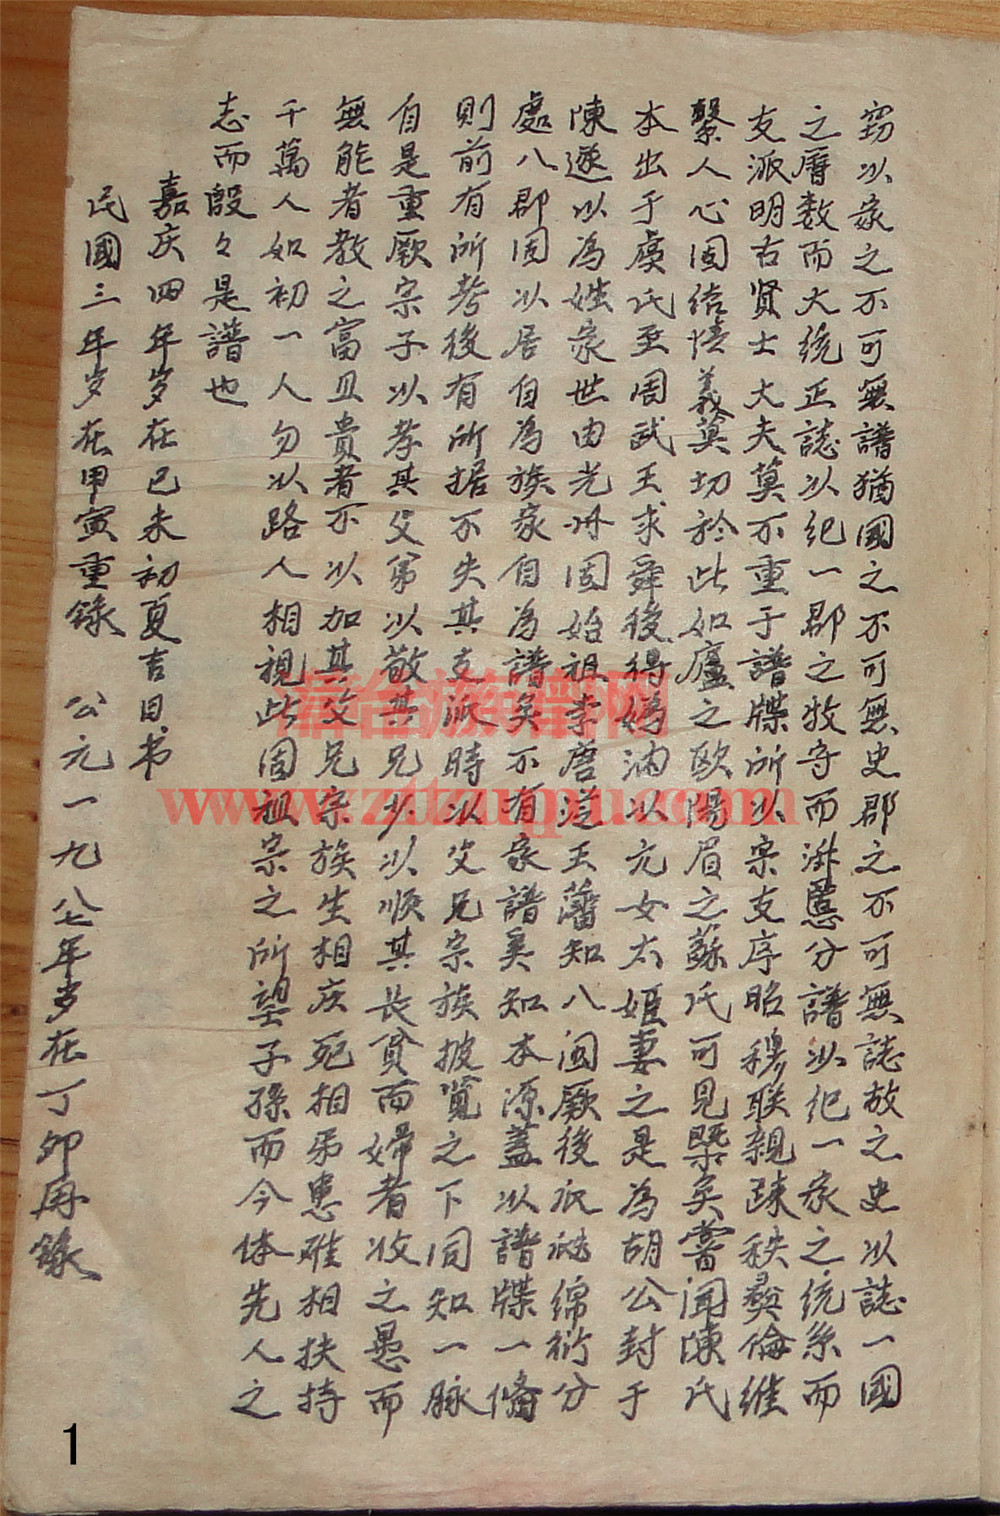 窃以家之不可無譜猶國之不可無史郡之不可無誌故之史以誌一國
之曆数而大統正誌以纪一郡之牧守而淋慝分譜以纪一家之统系而
支派明古贤士大夫莫不重于譜牒所以宗支序昭穆联親疎秩彜倫维
繫人心固结情義莫切於此如廬之欧陽眉之蘇氏可見槩矣嘗闻陳氏
本出于虞氏至周武王求舜後得妫满以元女太姬妻之是為胡公封于
陳遂以為姓家世由光州固始祖李唐從王藩知八闽厥後派繩绵衍分
處八郡固以居自為族家自為譜矣不有家譜奚知本源蓋以譜牒一脩
則前有所考後有所据不失其支派時以父兄宗族披览之下同知一脉
自是重厥宗子以孝其父弟以敬其兄少以顺其长贫而婦者收之愚而
無能者教之富且貴者不以加其父兄宗族生相庆死相吊患难相扶持
千萬人如初一人勿以路人相視此固祖宗之所望子孫而今体先人之
志而殷々是譜也
嘉庆四年岁在己未初夏吉日书
民國三年岁在甲寅重錄 公元一九八七年岁在丁卯再錄
清台族譜网
www.zttzupu.com
1